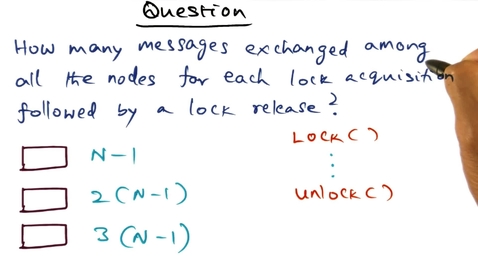 Question
How many messages exchanged among
all the nodes for each lock acquisition
followed by a lock release?
N-1
2(N-1)
3(N-1)
LOCK()
UNLOCK()